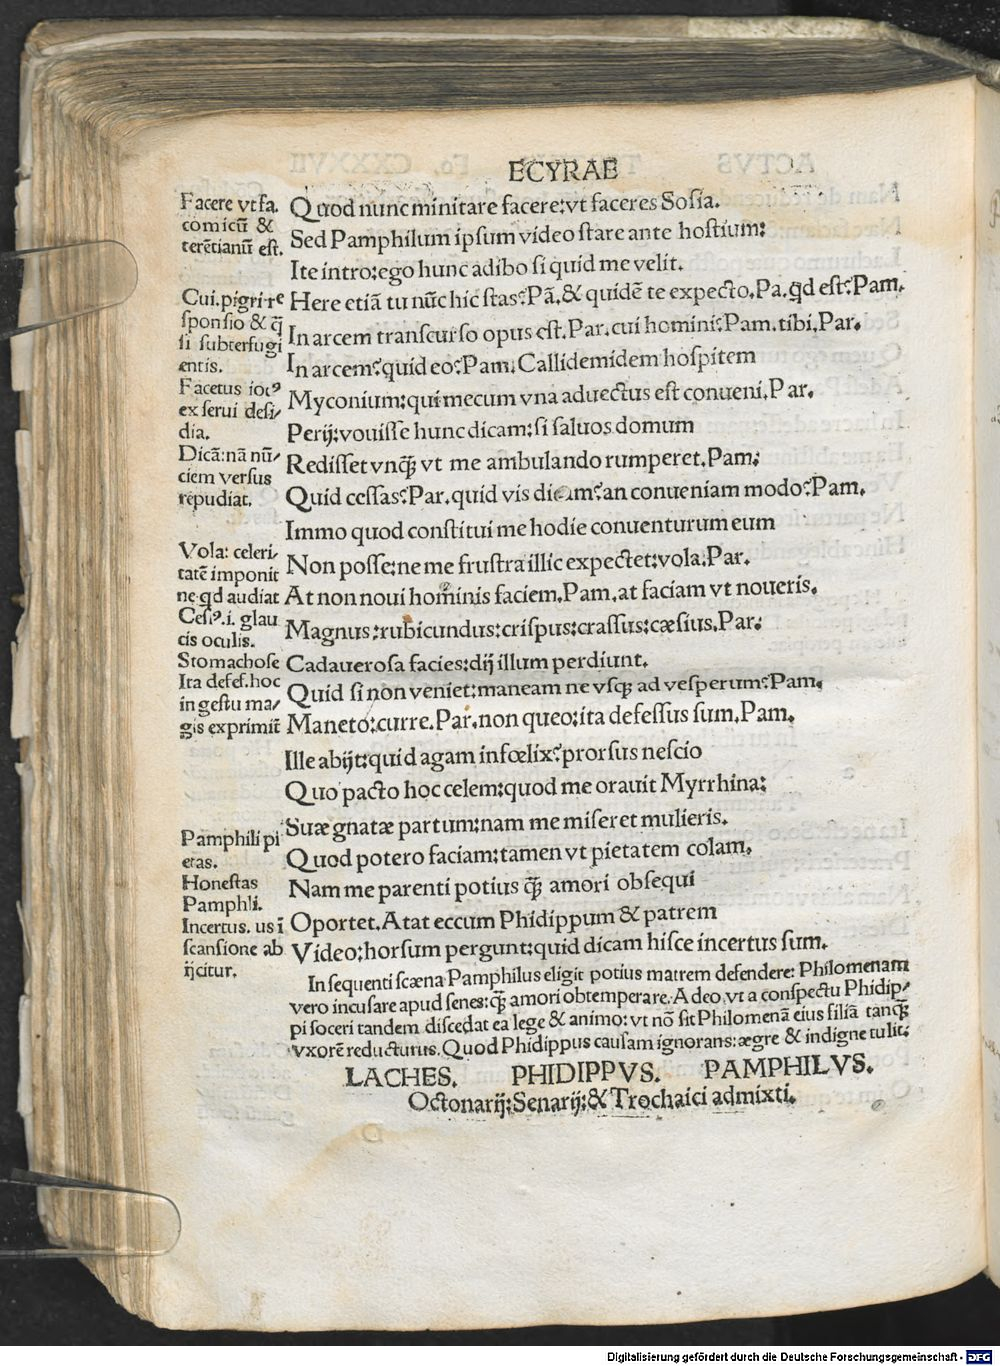 ECYRAE
Facere vt fa.
comicū &
terētianū est.
Cui. pigri re
sponsio & q̄
si subterfugi
entis.
Facetus iocꝰ
ex serui desi/
dia.
Dicā: nā nū/
ciem versus
repudiat.
Vola: celeri/
tatē imponit
ne qd audiat
Cesiꝰ. i. glau
cis oculis.
Stomachose
Ita defes. hoc
in gestu ma/
gis exprimit̄
Pamphili pi
etas.
Honestas
Pamphli.
Incertus. us ī
scansione ab
ijcitur.
Quod nunc minitare facere: vt faceres Sosia.
Sed Pamphilum ipsum video stare ante hostium:
Ite intro: ego hunc adibo si quid me velit.
Here etiā tu nūc hic stas? Pā. & quidē te expecto. Pa. qd est? Pam.
In arcem transcurso opus est. Par. cui homini? Pam. tibi. Par.
In arcem? quid eo? Pam. Callidemidem hospitem
Myconium: qui mecum vna aduectus est conueni. Par.
Perij: vouisse hunc dicam: si saluos domum
Redisset vnqꝫ vt me ambulando rumperet. Pam:
Quid cessas? Par. quid vis dicam? an conueniam modo? Pam.
Immo quod constitui me hodie conuenturum eum
Non posse: ne me frustra illic expectet: vola. Par.
At non noui hominis faciem. Pam. at faciam vt noueris.
Magnus: rubicundus: crispus: crassus: cæsius. Par:
Cadauerosa facies: dij illum perdiunt.
Quid si non veniet: maneam ne vsqꝫ ad vesperum? Pam.
Maneto: curre. Par. non queo: ita defessus sum. Pam.
Ille abijt: quid agam infœlix? prorsus nescio
Quo pacto hoc celem: quod me orauit Myrrhina:
Suæ gnatæ partum: nam me miseret mulieris.
Quod potero faciam: tamen vt pietatem colam.
Nam me parenti potius q̄ꝫ amori obsequi
Oportet. Atat eccum Phidippum & patrem
Video: horsum pergunt: quid dicam hisce incertus sum.
In sequenti scæna Pamphilus eligit potius matrem defendere: Philomenam
vero incusare apud senes: q̄ꝫ amori obtemperare. Adeo vt a conspectu Phidip/
pi soceri tandem discedat ea lege & animo: vt nō sit Philomenā eius filiā tanqꝫ
vxorē reducturus. Quod Phidippus causam ignorans: ægre & indigne tulit:
LACHES. PHIDIPPVS. PAMPHILVS.
Octonarij: Senarij: & Trochaici admixti.
Digitalisierung gefördert durch die Deutsche Forschungsgemeinschaft - DFG